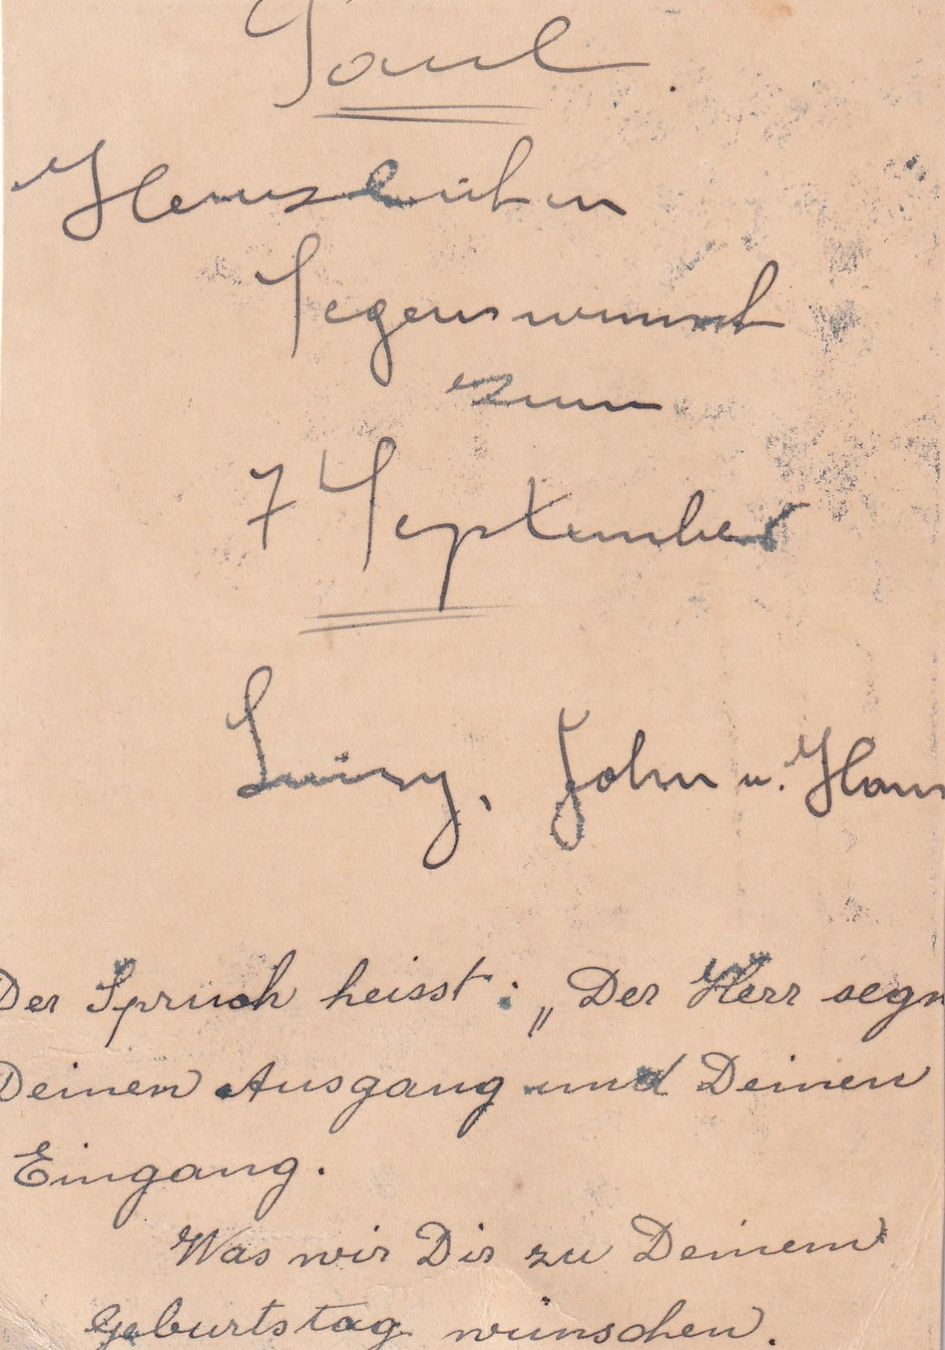 Paul
Herzlichen
Segenswunsch
zum
7 September
Luizy, John u. Hans
Der Spruch heisst: „Der Herr segn
Deinen Ausgang und Deinen
Eingang.
Was wir Dir zu Deinem
Geburtstag wünschen.